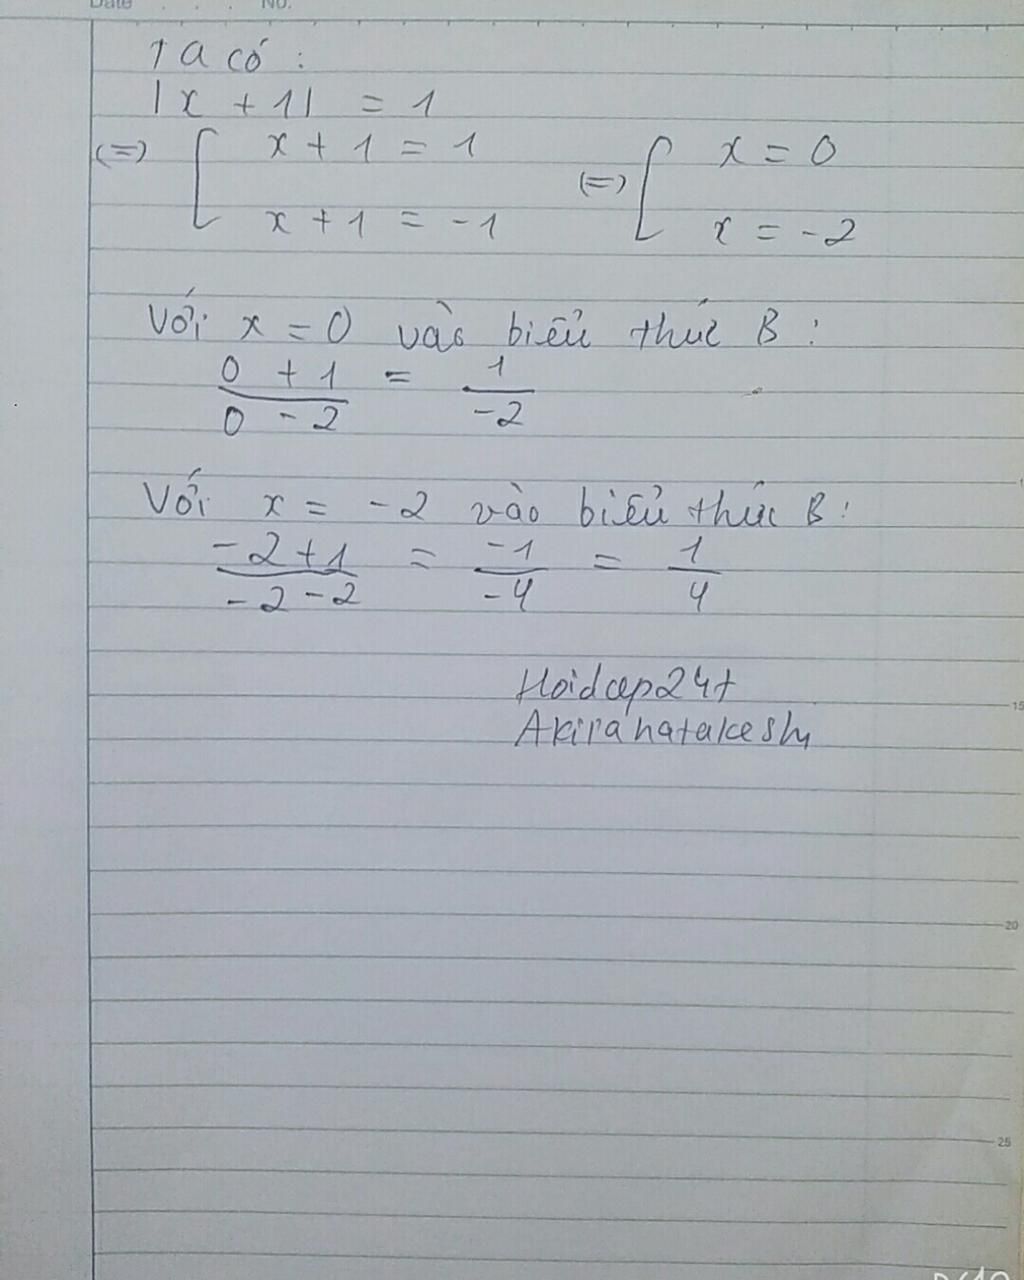 Date . . . No.
Ta có :
|x + 1| = 1
(=) [ x + 1 = 1 (=) [ x = 0
x + 1 = -1 x = -2
Với x = 0 vào biểu thức B :
0 + 1 / 0 - 2 = 1 / -2
Với x = -2 vào biểu thức B :
-2 + 1 / -2 - 2 = -1 / -4 = 1 / 4
Hoidap24+
Akirahatakeshi
15
20
25